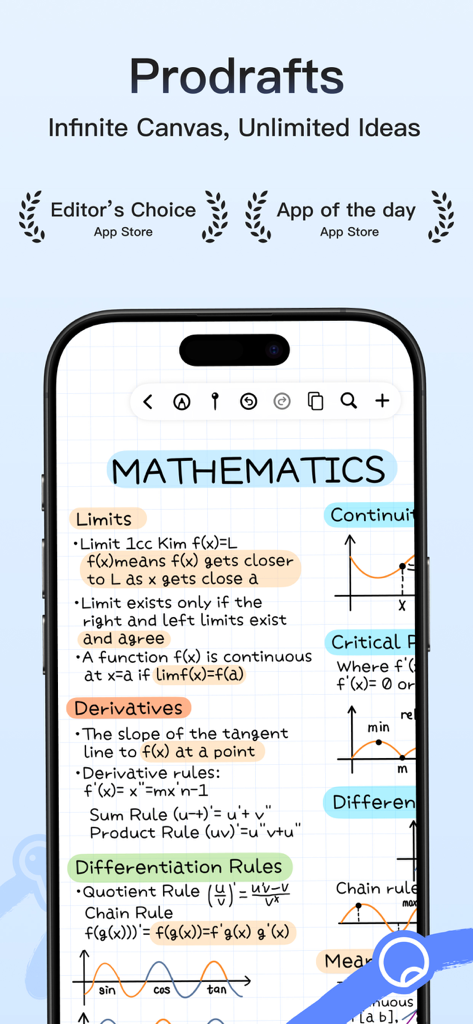 Prodrafts
Infinite Canvas, Unlimited Ideas
Editor's Choice
App Store
App of the day
App Store
MATHEMATICS
Limits
•Limit 1cc Kim f(x)=L
f(x)means f(x) gets closer
to L as x gets close a
•Limit exists only if the
right and left limits exist
and agree
•A function f(x) is continuous
at x=a if limf(x)=f(a)
Derivatives
•The slope of the tangent
line to f(x) at a point
•Derivative rules:
f'(x)= x"=mx'n-1
Sum Rule (u-+)'= u'+ v"
Product Rule (uv)'=u"v+u"
Differentiation Rules
•Quotient Rule (u/v)'= uv-v/vx
Chain Rule
f(g(x)))'= f(g(x))=f'g(x) g'(x)
sin cos tan
Continuit
x
Critical P
Where f'(
f'(x)= 0 or
rel
min
m
Differen
Chain rule
max
Mean
nuous
[a b],